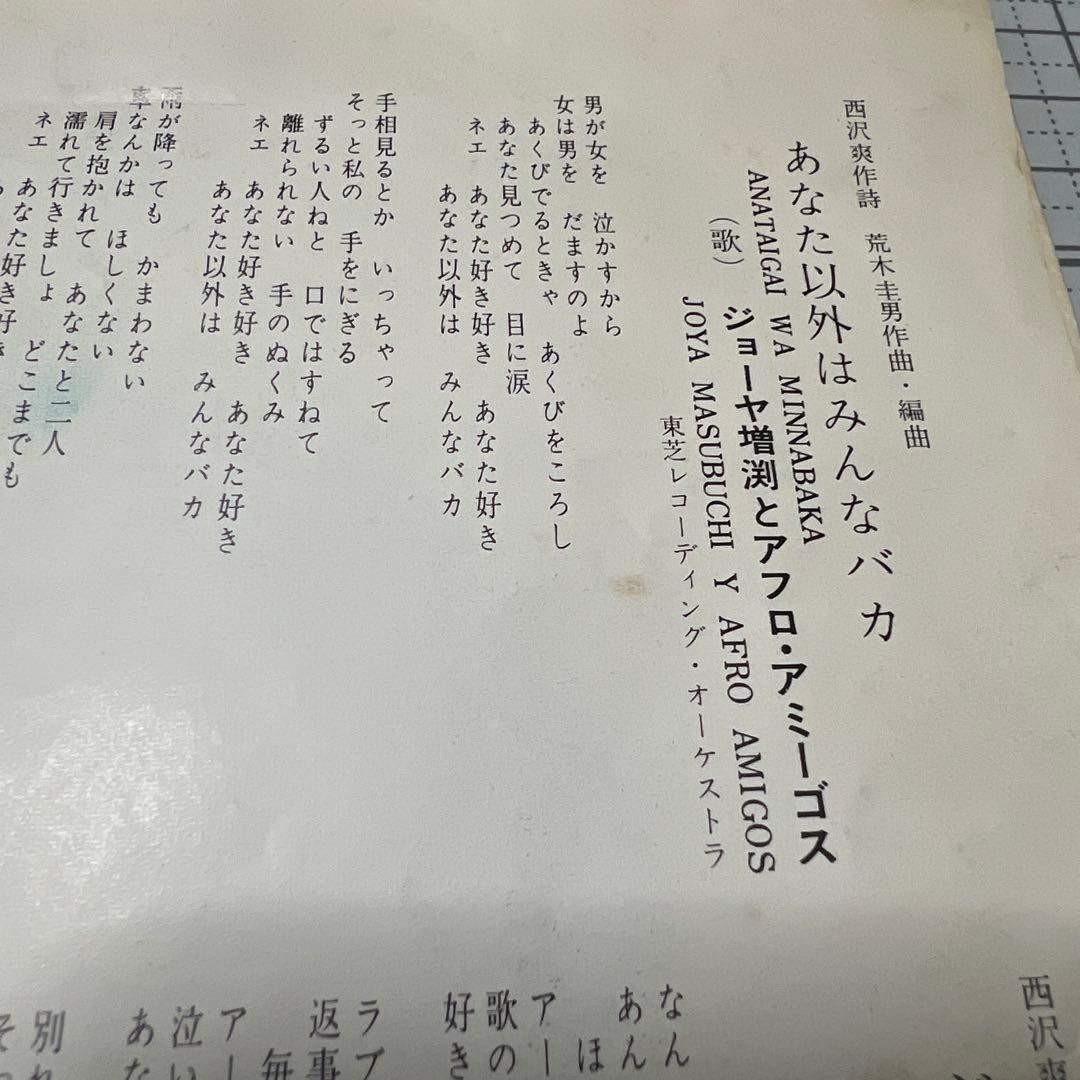 西沢爽作詩　荒木圭男作曲・編曲
あなた以外はみんなバカ
ANATAIGAI WA MINNABAKA
（歌）ジョーヤ増渕とアフロ・アミーゴス
JOYA MASUBUCHI Y AFRO AMIGOS
東芝レコーディング・オーケストラ
男が女を　泣かすから
女は男を　だますのよ
あくびでるときゃ　あくびをころし
あなた見つめて　目に涙
ネエ　あなた好き好き　あなた好き
あなた以外は　みんなバカ
手相見るとか　いっちゃって
そっと私の　手をにぎる
ずるい人ねと　口ではすねて
離れられない　手のぬくみ
ネエ　あなた好き好き　あなた好き
あなた以外は　みんなバカ
雨が降っても　かまわない
車なんかは　ほしくない
肩を抱かれて　あなたと二人
濡れて行きましょ　どこまでも
ネエ　あなた好き好き
西沢爽
なん
あん
ほ
アー
歌の
好き
ラブ
返事
毎
アー
泣い
あな
別れ